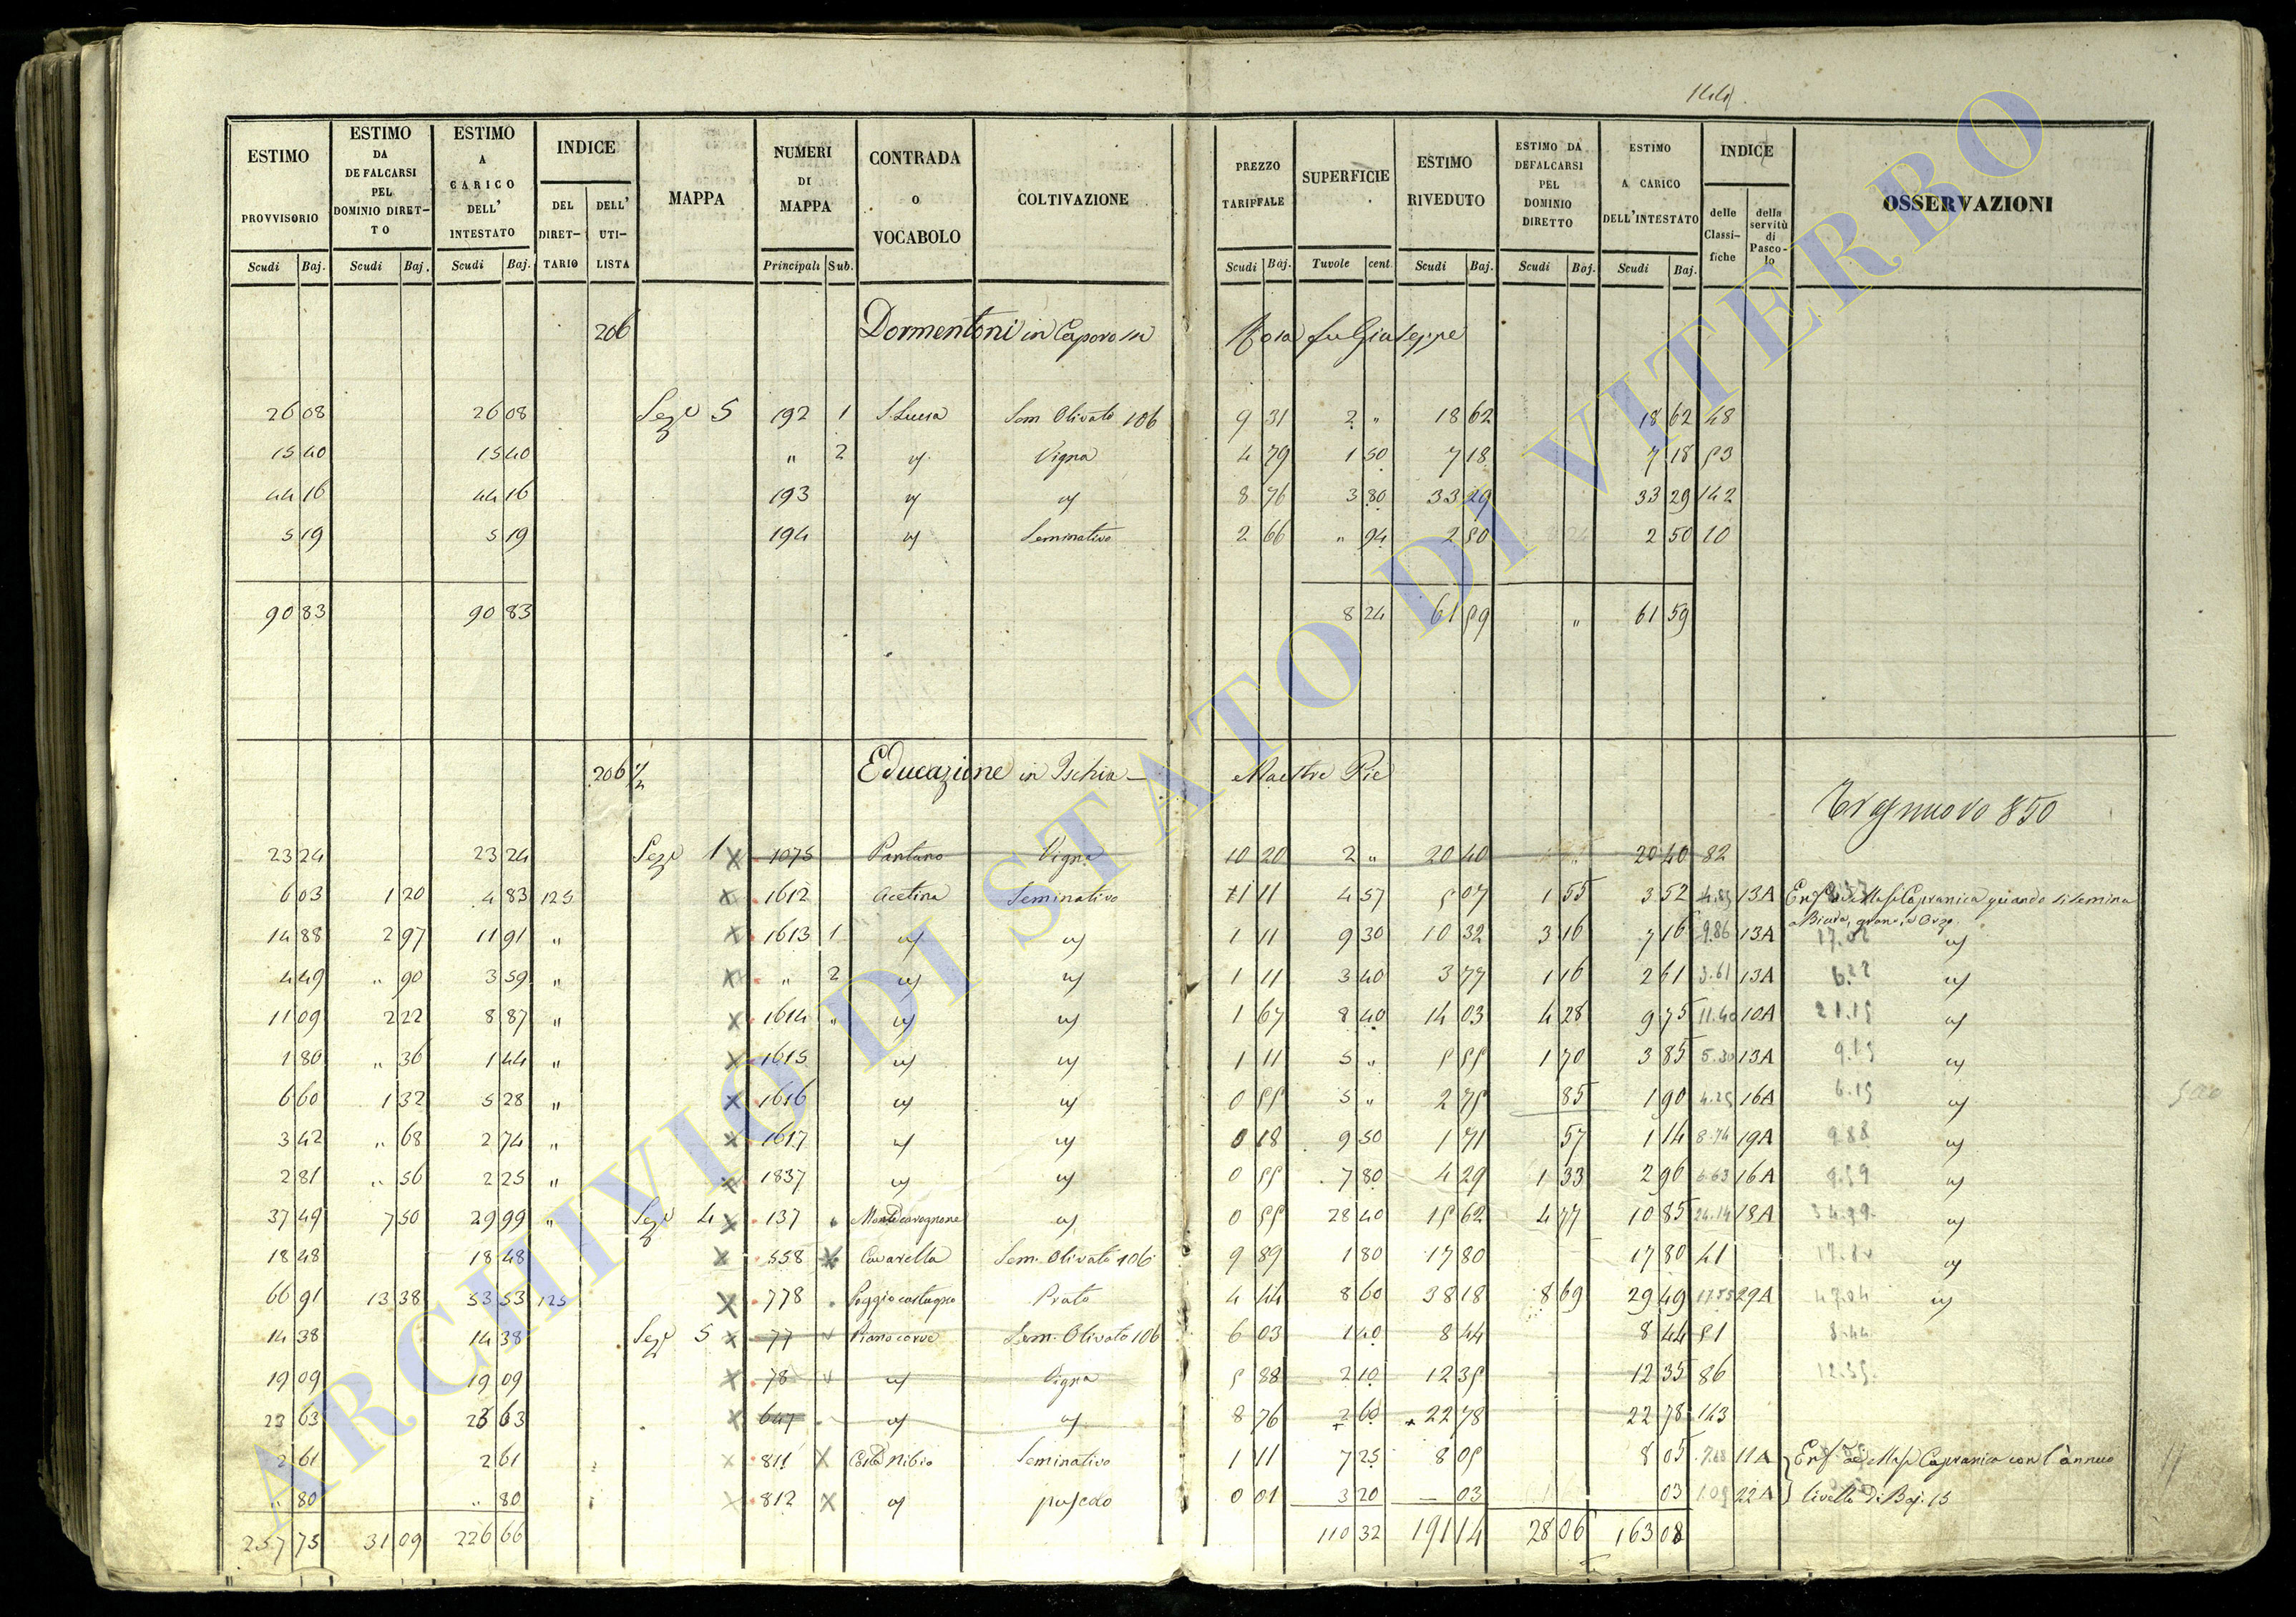 144
ESTIMO PROVVISORIO Scudi Baj. ESTIMO DA DEFALCARSI PEL DOMINIO DIRET- TO Scudi Baj. ESTIMO A CARICO DELL' INTESTATO Scudi Baj. INDICE DEL DIRET- TARIO DELL' UTI- LISTA MAPPA NUMERI DI MAPPA Principali Sub. CONTRADA O VOCABOLO COLTIVAZIONE PREZZO TARIFFALE Scudi Baj. SUPERFICIE Tavole cent. ESTIMO RIVEDUTO Scudi Baj. ESTIMO DA DEFALCARSI PEL DOMINIO DIRETTO Scudi Baj. ESTIMO A CARICO DELL'INTESTATO Scudi Baj. INDICE delle Classi- fiche della servitù di Pasco- lo OSSERVAZIONI
206 Dormentoni in Caporossi Rosa fu Giuseppe
26 08 26 08 Sez. 5 192 1 S. Lucia Sem. Olivato 106 9 31 2 " 18 62 18 62 48
15 40 15 40 " 2 Vigna 4 79 1 50 7 18 7 18 53
44 16 44 16 193 8 76 3 80 33 29 33 29 142
5 19 5 19 194 Seminativo 2 66 " 94 2 50 2 50 10
90 83 90 83 8 24 61 59 " 61 59
206 1/2 Educazione in Ischia - Maestre Pie
nuovo 850
23 24 23 24 Sez. 1 X 1075 Pantano Vigna 10 20 2 " 20 40 20 40 82
6 03 1 20 4 83 125 X 1612 Acetina Seminativo 1 11 4 57 5 07 1 55 3 52 4.85 13A Capranica quando si semina
14 88 2 97 11 91 " X 1613 1 1 11 9 30 10 32 3 16 7 16 9.86 13A 17.02
4 49 " 90 3 59 " X " 2 1 11 3 40 3 77 1 16 2 61 3.61 13A 6.22
11 09 2 22 8 87 " X 1614 " 1 67 8 40 14 03 4 28 9 75 11.40 10A 21.15
1 80 " 36 1 44 " X 1615 1 11 5 " 5 55 1 70 3 85 5.30 13A 9.15
6 60 1 32 5 28 " X 1616 0 55 5 " 2 75 85 1 90 4.25 16A 6.15
3 42 " 68 2 74 " X 1617 0 18 9 50 1 71 57 1 14 8.74 19A 9.88
2 81 " 56 2 25 " X 1837 0 55 7 80 4 29 1 33 2 96 6.63 16A 9.59
37 49 7 50 29 99 " Sez. 4 X 137 Monte cavagnone 0 55 28 40 15 62 4 77 10 85 24.14 18A 34.99
18 48 18 48 X 558 X Cavarella Sem. Olivato 106 9 89 1 80 17 80 17 80 41
66 91 13 38 53 53 125 X 778 Poggio castagno Prato 4 44 8 60 38 18 8 69 29 49 17.55 29A 47.04
14 38 14 38 Sez. 5 X 77 Piano corve Sem. Olivato 106 6 03 1 40 8 44 8 44 51 8.44
19 09 19 09 X 78 Vigna 5 88 2 10 12 35 12 35 86 12.35
23 63 23 63 X 647 8 76 2 60 22 78 22 78 143
2 61 2 61 X 811 X Costa Nibio Seminativo 1 11 7 25 8 05 8 05 7.68 11A Capranica con l'annuo
" 80 " 80 X 812 X pascolo 0 01 3 20 03 03 22A livello di Baj. 15
257 75 31 09 226 66 110 32 191 14 28 06 163 08
ARCHIVIO DI STATO DI VITERBO